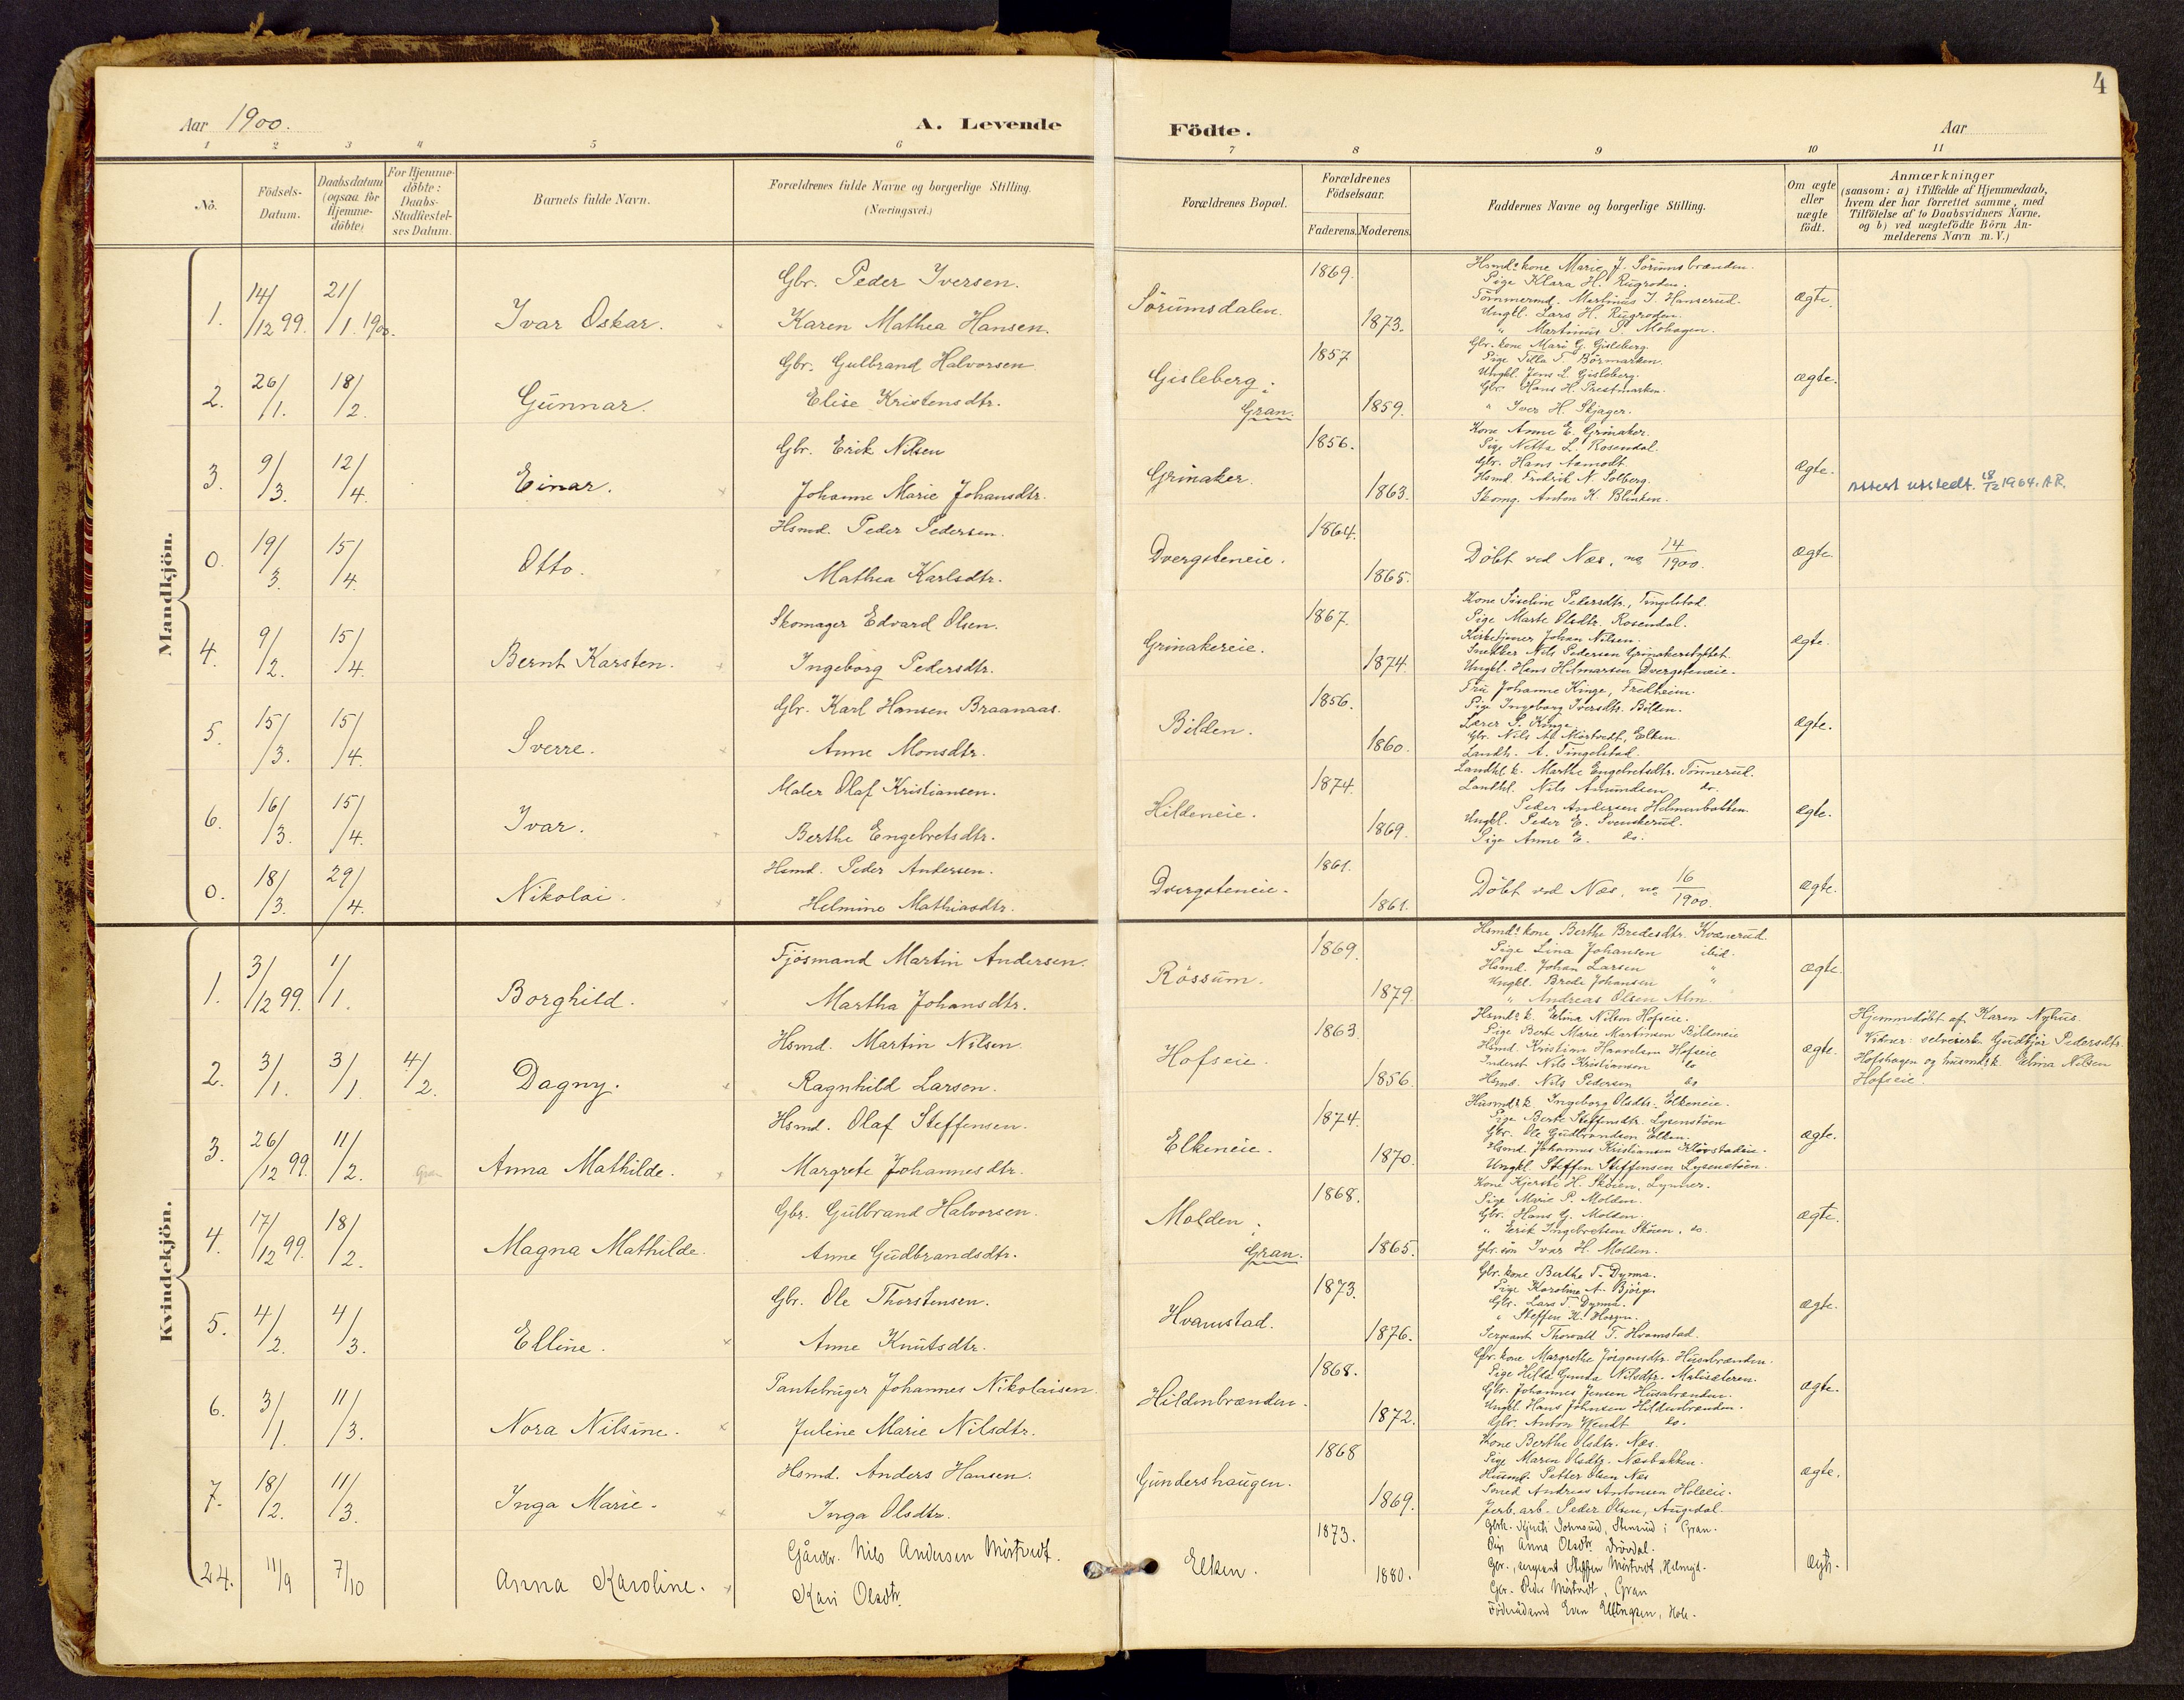 4
Aar 1900.
A. Levende Födte.
Aar
1 2 3 4 5 6 7 8 9 10 11
No.
Födsels-Datum.
Daabsdatum (ogsaa for Hjemme-döbte)
For Hjemme-döbte: Daabs-Stadfæstel-ses Datum.
Barnets fulde Navn.
Forældrenes fulde Navne og borgerlige Stilling. (Næringsvei.)
Forældrenes Bopæl.
Forældrenes Födselsaar.
Faderens. Moderens.
Faddernes Navne og borgerlige Stilling.
Om ægte eller uægte födt.
Anmærkninger
(saasom: a) i Tilfælde af Hjemmedaab,
hvem der har forrettet samme, med
Tilföielse af to Daabsvidners Navne,
og b) ved uægtefödte Börn An-
melderens Navn m.V.)
Mandkjön.
1. 14/12 99. 21/1. 1900. Ivar Oskar.
Gbr. Peder Iversen.
Karen Mathea Hansen.
Sörumsdalen. 1869. 1873.
Hsmds kone Marie J. Sörumsbrænden.
Pige Klara H. Rugroden.
Tömmermd. Martinus J. Hanserud.
Ungkl. Lars H. Rugroden.
" Martinus P. Mohagen.
ægte.
2. 26/1. 18/2. Gunnar.
Gbr. Gulbrand Halvorsen
Elise Kristensdtr.
Gisleberg; Gran. 1857 1859.
Gbr. kone Mari G. Gisleberg.
Pige Tilla T. Börmarken.
Ungkl. Jens L. Gisleberg.
Gbr. Hans H. Prestmarken.
" Iver H. Skjager.
ægte.
3. 9/3. 12/4. Einar.
Gbr. Erik Nilsen
Johanne Marie Johansdtr.
Grinaker. 1856. 1863.
Kone Anne E. Grinaker.
Pige Netta L. Rosendal.
Gbr. Hans Aamodt.
Hsmd. Fredrik N. Solberg.
Skomg. Anton K. Blinken.
ægte.
Attest utstedt. 18/12 1964. AR.
0. 19/3. 15/4. Otto.
Hsmd. Peder Pedersen.
Mathea Karlsdtr.
Dvergsteneie. 1864. 1865.
Döbt ved Næs, no 14/1900.
ægte.
4. 9/2. 15/4. Bernt Karsten.
Skomager Edvard Olsen.
Ingeborg Pedersdtr.
Grinakereie. 1867. 1874.
Kone Siseline Pedersdtr., Tingelstad.
Pige Marte Olsdtr. Rosendal.
Kirketjener Johan Nilsen.
Snekker Nils Pedersen Grinakerstykket.
Ungkl. Hans Hilmarsen Dvergsteneie.
ægte.
5. 15/3. 15/4. Sverre.
Gbr. Karl Hansen Braanaas.
Anne Monsdtr.
Bilden. 1856. 1860.
Fru Johanne Kinge, Fredheim.
Pige Ingeborg Iversdtr. Bilden.
Lærer S. Kinge.
Gbr. Nils A. Mörtvedt, Elken.
Landh. A. Tingelstad.
ægte.
6. 16/3. 15/4. Ivar.
Maler Olaf Kristiansen.
Berthe Engebretsdtr.
Hildeneie. 1874. 1869.
Landhl k. Marthe Engebretsdtr. Tönnerud.
Landhl. Nils Amundsen do.
Peder Andersen Helmenbakken.
Ungkl. Peder E. Svenskerud.
Pige Anne E. do.
ægte.
0. 18/3. 29/4. Nikolai.
Hsmd. Peder Andersen.
Helmine Mathiasdtr.
Dvergsteneie. 1861. 1861.
Döbt ved Næs, no 16/1900.
ægte.
Kvindekjön.
1. 3/12 99. 1/1. Borghild.
Fjösmand Martin Andersen.
Martha Johansdtr.
Rössum. 1869. 1879.
Hsmds kone Berthe Bredesdtr. Kvænerud.
Pige Lina Johansen ibid.
Hsmd. Johan Larsen "
Ungkl. Brede Johansen "
" Andreas Olsen Alm.
ægte.
2. 3/1. 3/1. 4/2. Dagny.
Hsmd. Martin Nilsen.
Ragnhild Larsen.
Hofseie. 1863. 1856.
Hsmds k. Elina Nilsen Hofseie.
Pige Berte Marie Martinsen Bildeneie
Hsmd. Kristian Haavelsen Hofseie
Inderst Nils Kristiansen do
Hsmd. Nils Pedersen do
ægte.
Hjemmedöbt af Karen Nyhus.
Vidner: selveiersk. Gudbjör Pedersdtr.
Hofshagen og husmdsk. Elina Nilsen
Hofseie.
3. 26/12 99. 11/2. Gran Anna Mathilde.
Hsmd. Olaf Steffensen.
Margrete Johannesdtr.
Elkeneie. 1874. 1870.
Husmdsk. Ingeborg Olsdtr. Elkeneie.
Pige Berte Steffensdtr. Lysenstöen
Gbr. Ole Gudbrandsen Elken.
Hsmd. Johannes Kristiansen Klövstadeie.
Ungkl. Steffen Steffensen Lysenstöen.
ægte.
4. 17/12 99. 18/2. Magna Mathilde.
Gbr. Gulbrand Halvorsen.
Anne Gudbrandsdtr.
Molden; Gran. 1868. 1865.
Kone Kjersti H. Sköien, Lynner.
Pige Marie P. Molden.
Gbr. Hans G. Molden.
" Erik Ingebretsen Sköien, do.
Gbr. sön Ivar H. Molden.
ægte.
5. 4/2. 4/3. Elline.
Gbr. Ole Thorstensen.
Anne Knutsdtr.
Hvamstad. 1873. 1876.
Gbr. kone Berthe T. Dynna.
Pige Karoline A. Björge.
Gbr. Lars T. Dynna.
" Steffen K. Horgen.
Sergeant Thorvald T. Hvamstad.
ægte.
6. 3/1. 11/3. Nora Nilsine.
Pantebruger Johannes Nikolaisen.
Juline Marie Nilsdtr.
Hildenbrænden. 1868. 1872.
Gbr. kone Margrethe Jörgensdtr. Husabrænden.
Pige Hilda Gunda Nilsdtr. Malisæteren.
Gbr. Johannes Jensen Husabrænden.
Ungkl. Hans Johnsen Hildenbrænden.
Gbr. Anton Wendt do.
ægte.
7. 18/2. 11/3. Inga Marie.
Hsmd. Anders Hansen.
Inga Olsdtr.
Gundershaugen. 1868 1869.
Kone Berthe Olsdtr. Næs.
Pige Maren Olsdtr. Næsbakken.
Husmd. Petter Olsen Næs
Smed Andreas Antonsen Holeeie.
Jerb. arb. Peder Olsen, Augedal.
ægte.
24. 11/9 7/10 Anna Karoline.
Gårdbr. Nils Andersen Mörtvedt.
Kari Olsdtr.
Elken. 1873. 1880.
Gbrk. Kjersti Johnsrud, Stensrud i Gran.
Pige Anna Olsdtr.
Gbr., sergeant Steffen Mörtvedt,
Gbr. Peder Mörtvedt, Gran
Föderådsmd Even Ellingsen, Hole.
ægte.